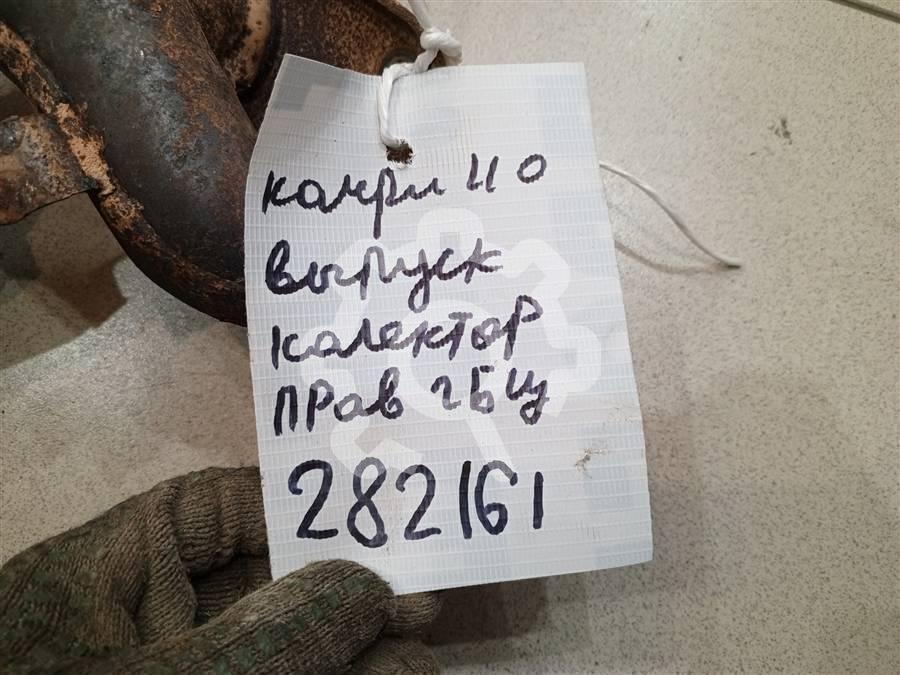 камри 40
выпуск
калектор
прав гбц
282161